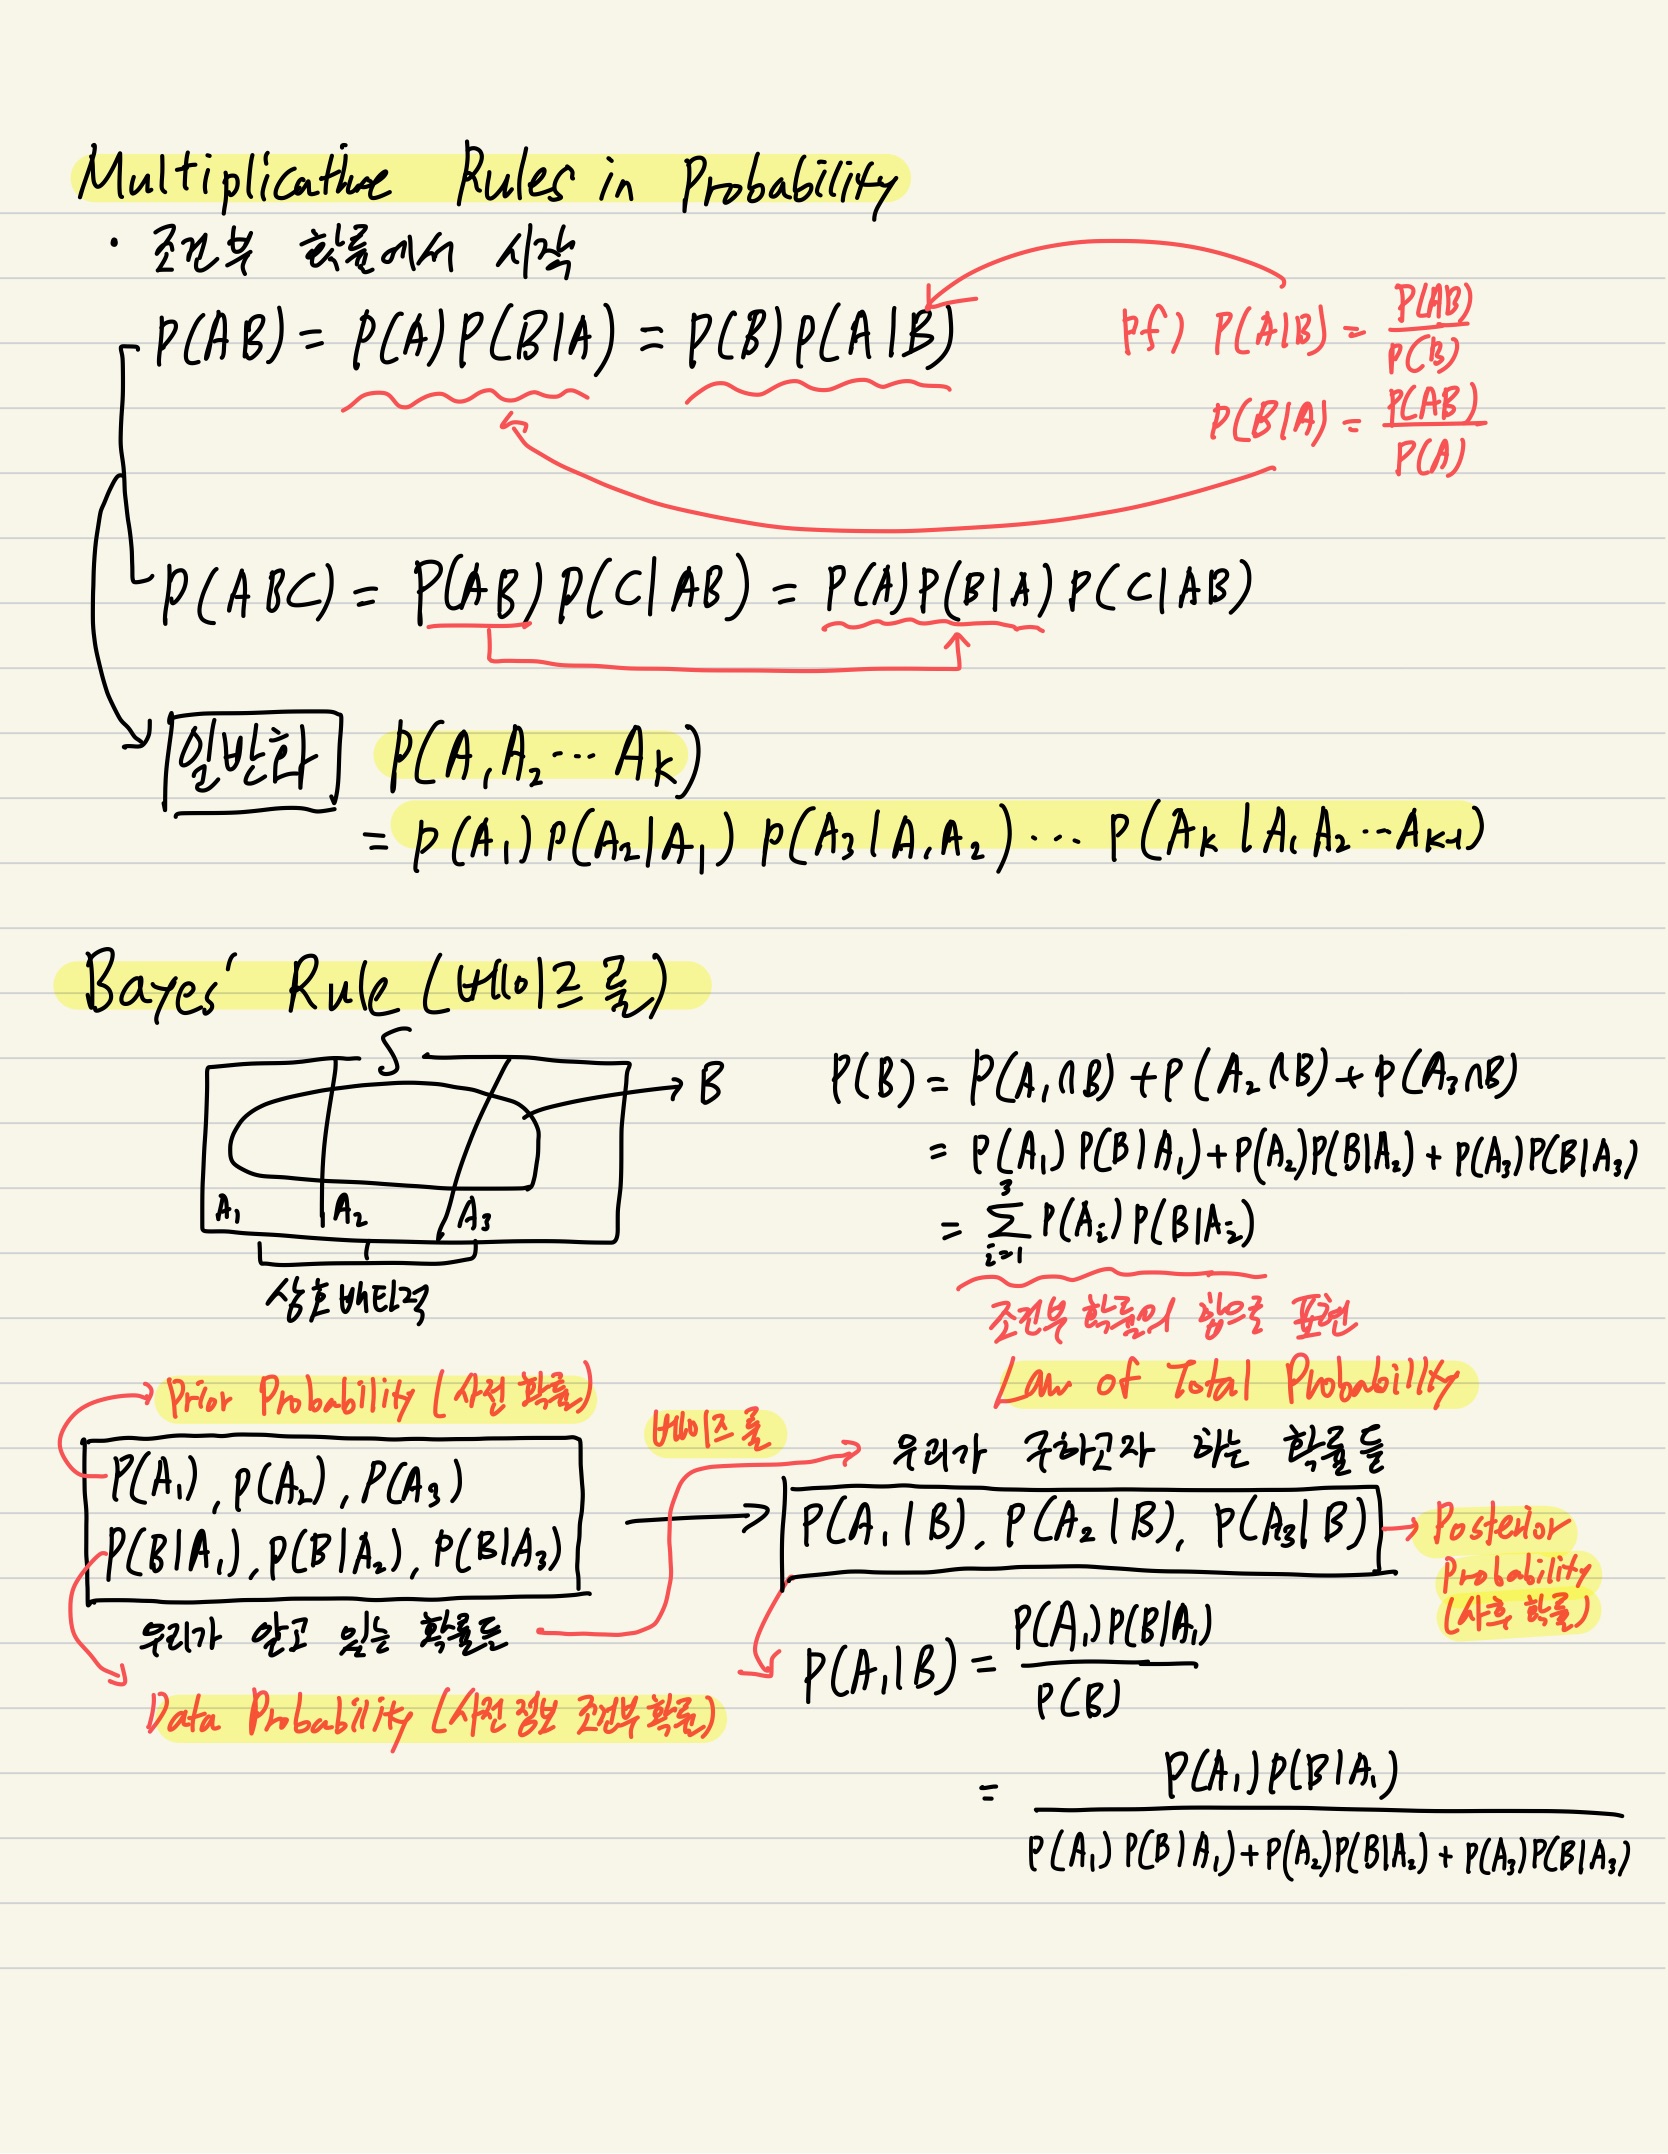 Multiplicative Rules in Probability
· 조건부 확률에서 시작
P(AB) = P(A)P(B|A) = P(B)P(A|B)
pf) P(A|B) = P(AB)/P(B)
P(B|A) = P(AB)/P(A)
P(ABC) = P(AB)P(C|AB) = P(A)P(B|A)P(C|AB)
일반화 P(A₁A₂⋯Aₖ)
= P(A₁)P(A₂|A₁)P(A₃|A₁A₂)⋯P(Aₖ|A₁A₂⋯Aₖ₋₁)
Bayes' Rule (베이즈 룰)
S
B
A₁ A₂ A₃
상호배타적
P(B) = P(A₁∩B)+P(A₂∩B)+P(A₃∩B)
= P(A₁)P(B|A₁)+P(A₂)P(B|A₂)+P(A₃)P(B|A₃)
= Σᵢ₌₁³ P(Aᵢ)P(B|Aᵢ)
조건부 확률의 합으로 표현
Law of Total Probability
Prior Probability (사전 확률)
P(A₁), P(A₂), P(A₃)
P(B|A₁), P(B|A₂), P(B|A₃)
우리가 알고 있는 확률들
Data Probability (사전 정보 조건부 확률)
베이즈 룰
우리가 구하고자 하는 확률들
P(A₁|B), P(A₂|B), P(A₃|B)
Posterior
Probability
(사후 확률)
P(A₁|B) = P(A₁)P(B|A₁)/P(B)
= P(A₁)P(B|A₁)/P(A₁)P(B|A₁)+P(A₂)P(B|A₂)+P(A₃)P(B|A₃)